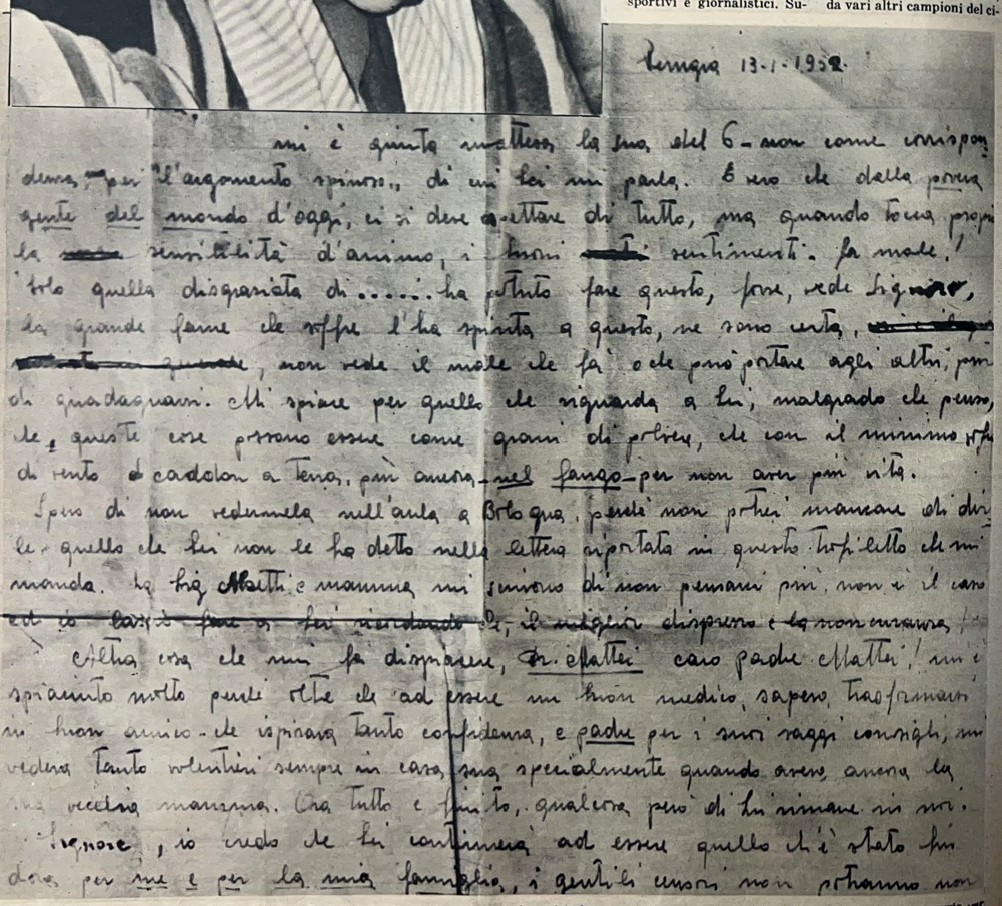 sportivi e giornalistici. Su-
da vari altri campioni del ci-
Perugia 13-1-1952.
mi è giunta inattesa la sua del 6 - non come corrispon
denza, per "l'argomento spinoso,, di cui Lei mi parla. È vero che dalla povera
gente del mondo d'oggi, ci si deve aspettare di tutto, ma quando tocca propri
la sensibilità d'animo, i buoni sentimenti. fa male!
Solo quella disgraziata di ...... ha potuto fare questo, forse, vede Signore,
la grande fame che soffre l'ha spinta a questo, ne sono certa,
, non vede il male che fa o che può portare agli altri, pur
di guadagnarsi. Mi spiace per quello che riguarda a Lei, malgrado che penso,
che, queste cose possono essere come grani di polvere, che con il minimo soffi
di vento cadolon a terra, più ancora - nel fango - per non aver più vita.
Spero di non vedermela nell'aula a Bologna, perchè non potrei mancare di dir
le - quello che Lei non le ha detto nella lettera riportata in questo trafiletto che mi
manda. La Sig. e mamma mi scrivono di non pensarci più, non è il caso
ed io lascio fare a Lei ricordando che, il miglior disprezzo è la non curanza!
Altra cosa che mi fa dispiacere, Dr. Mattei caro padre Mattei! mi è
spiaciuto molto perchè oltre che ad essere un buon medico, sapeva, trasformarsi
in buon amico - che ispirava tanto confidenza, e padre per i suoi saggi consigli, mi
vedeva tanto volentieri sempre in casa sua specialmente quando aveva, ancora la
sua vecchia mamma. Ora tutto è finito, qualcosa però di Lui rimane in noi.
Signore, io credo che Lei continuerà ad essere quello ch'è stato fin
dora per me e per la mia famiglia, i gentili censori non potranno non